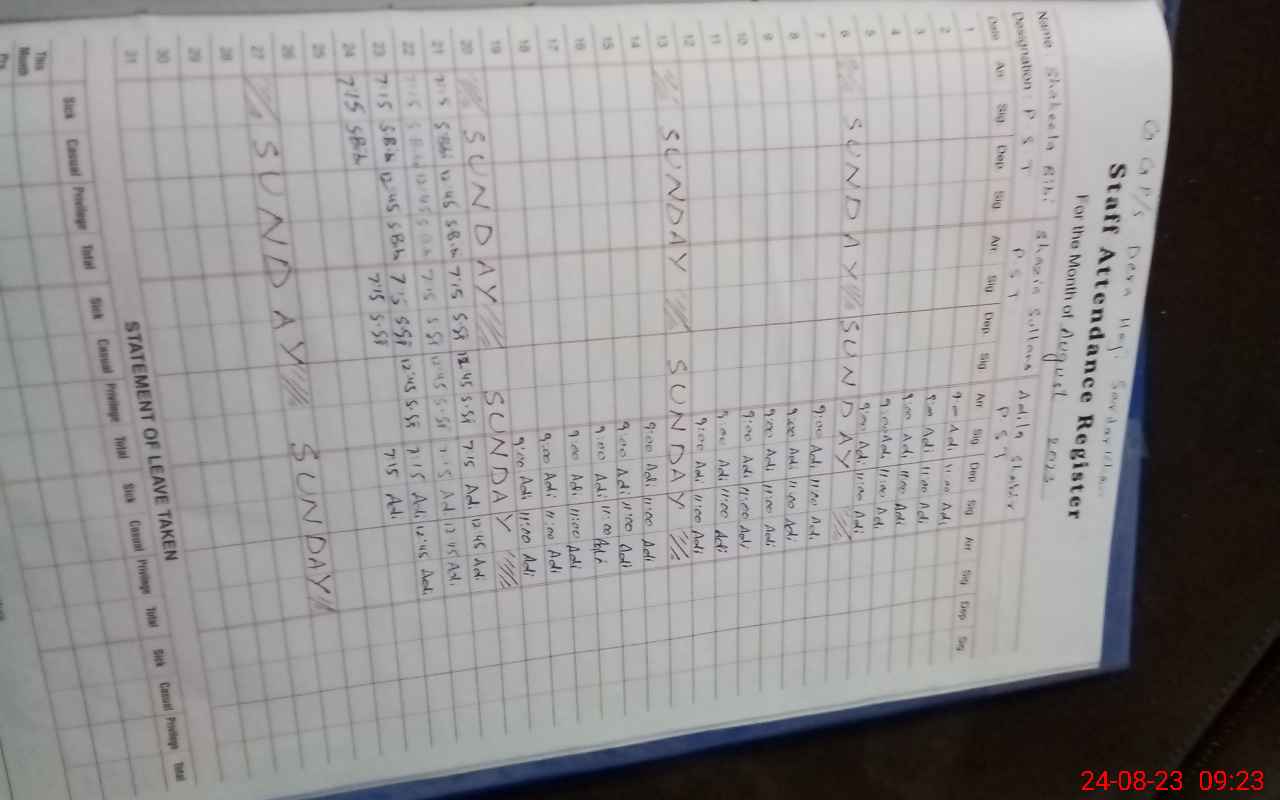 G G P/S Dera Haji Sardar
Staff Attendance Register
For the Month of August 2023
Name Shakeela Bibi Shazia Sultana Adila Shabir
Designation P S T P S T P S T
Date Arr Sig Dep Sig Arr Sig Dep Sig Arr Sig Dep Sig Arr Sig Dep Sig
1 9:00 Adi 11:00 Adi
2 9:00 Adi 11:00 Adi
3 9:00 Adi 11:00 Adi
4 9:00 Adi 11:00 Adi
5 9:00 Adi 11:00 Adi
6 SUNDAY SUNDAY
7 9:00 Adi 11:00 Adi
8 9:00 Adi 11:00 Adi
9 9:00 Adi 11:00 Adi
10 9:00 Adi 11:00 Adi
11 9:00 Adi 11:00 Adi
12 9:00 Adi 11:00 Adi
13 SUNDAY SUNDAY
14 9:00 Adi 11:00 Adi
15 9:00 Adi 11:00 Adi
16 9:00 Adi 11:00 Adi
17 9:00 Adi 11:00 Adi
18 9:00 Adi 11:00 Adi
19 9:00 Adi 11:00 Adi
20 SUNDAY SUNDAY
21 7:15 SBibi 12:45 SBibi 7:15 S-Sg 12:45 S-Sg 7:15 Adi 12:45 Adi
22 7:15 SBibi 12:45 SBibi 7:15 S-Sg 12:45 S-Sg 7:15 Adi 12:45 Adi
23 7:15 SBibi 12:45 SBibi 7:15 S-Sg 12:45 S-Sg 7:15 Adi 12:45 Adi
24 7:15 SBibi 7:15 S-Sg 7:15 Adi
25
26
27 SUNDAY SUNDAY
28
29
30
31
STATEMENT OF LEAVE TAKEN
Sick Casual Privilege Total Sick Casual Privilege Total Sick Casual Privilege Total Sick Casual Privilege Total
This Month
24-08-23 09:23